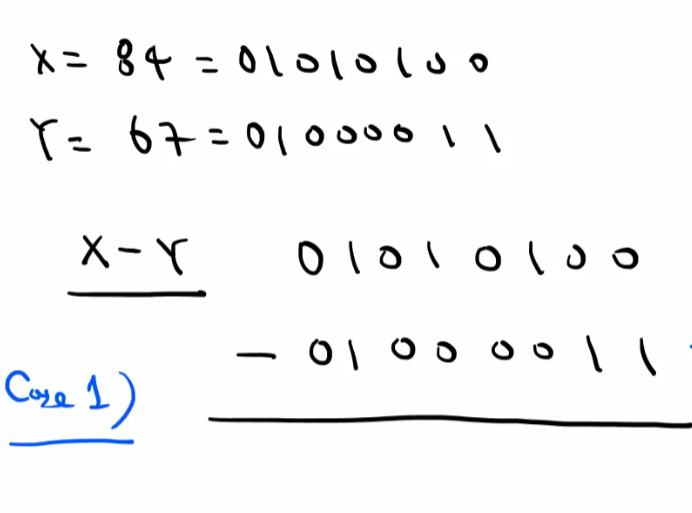 X = 84 = 01010100
Y = 67 = 01000011
X - Y 01010100
- 01000011
Case 1)